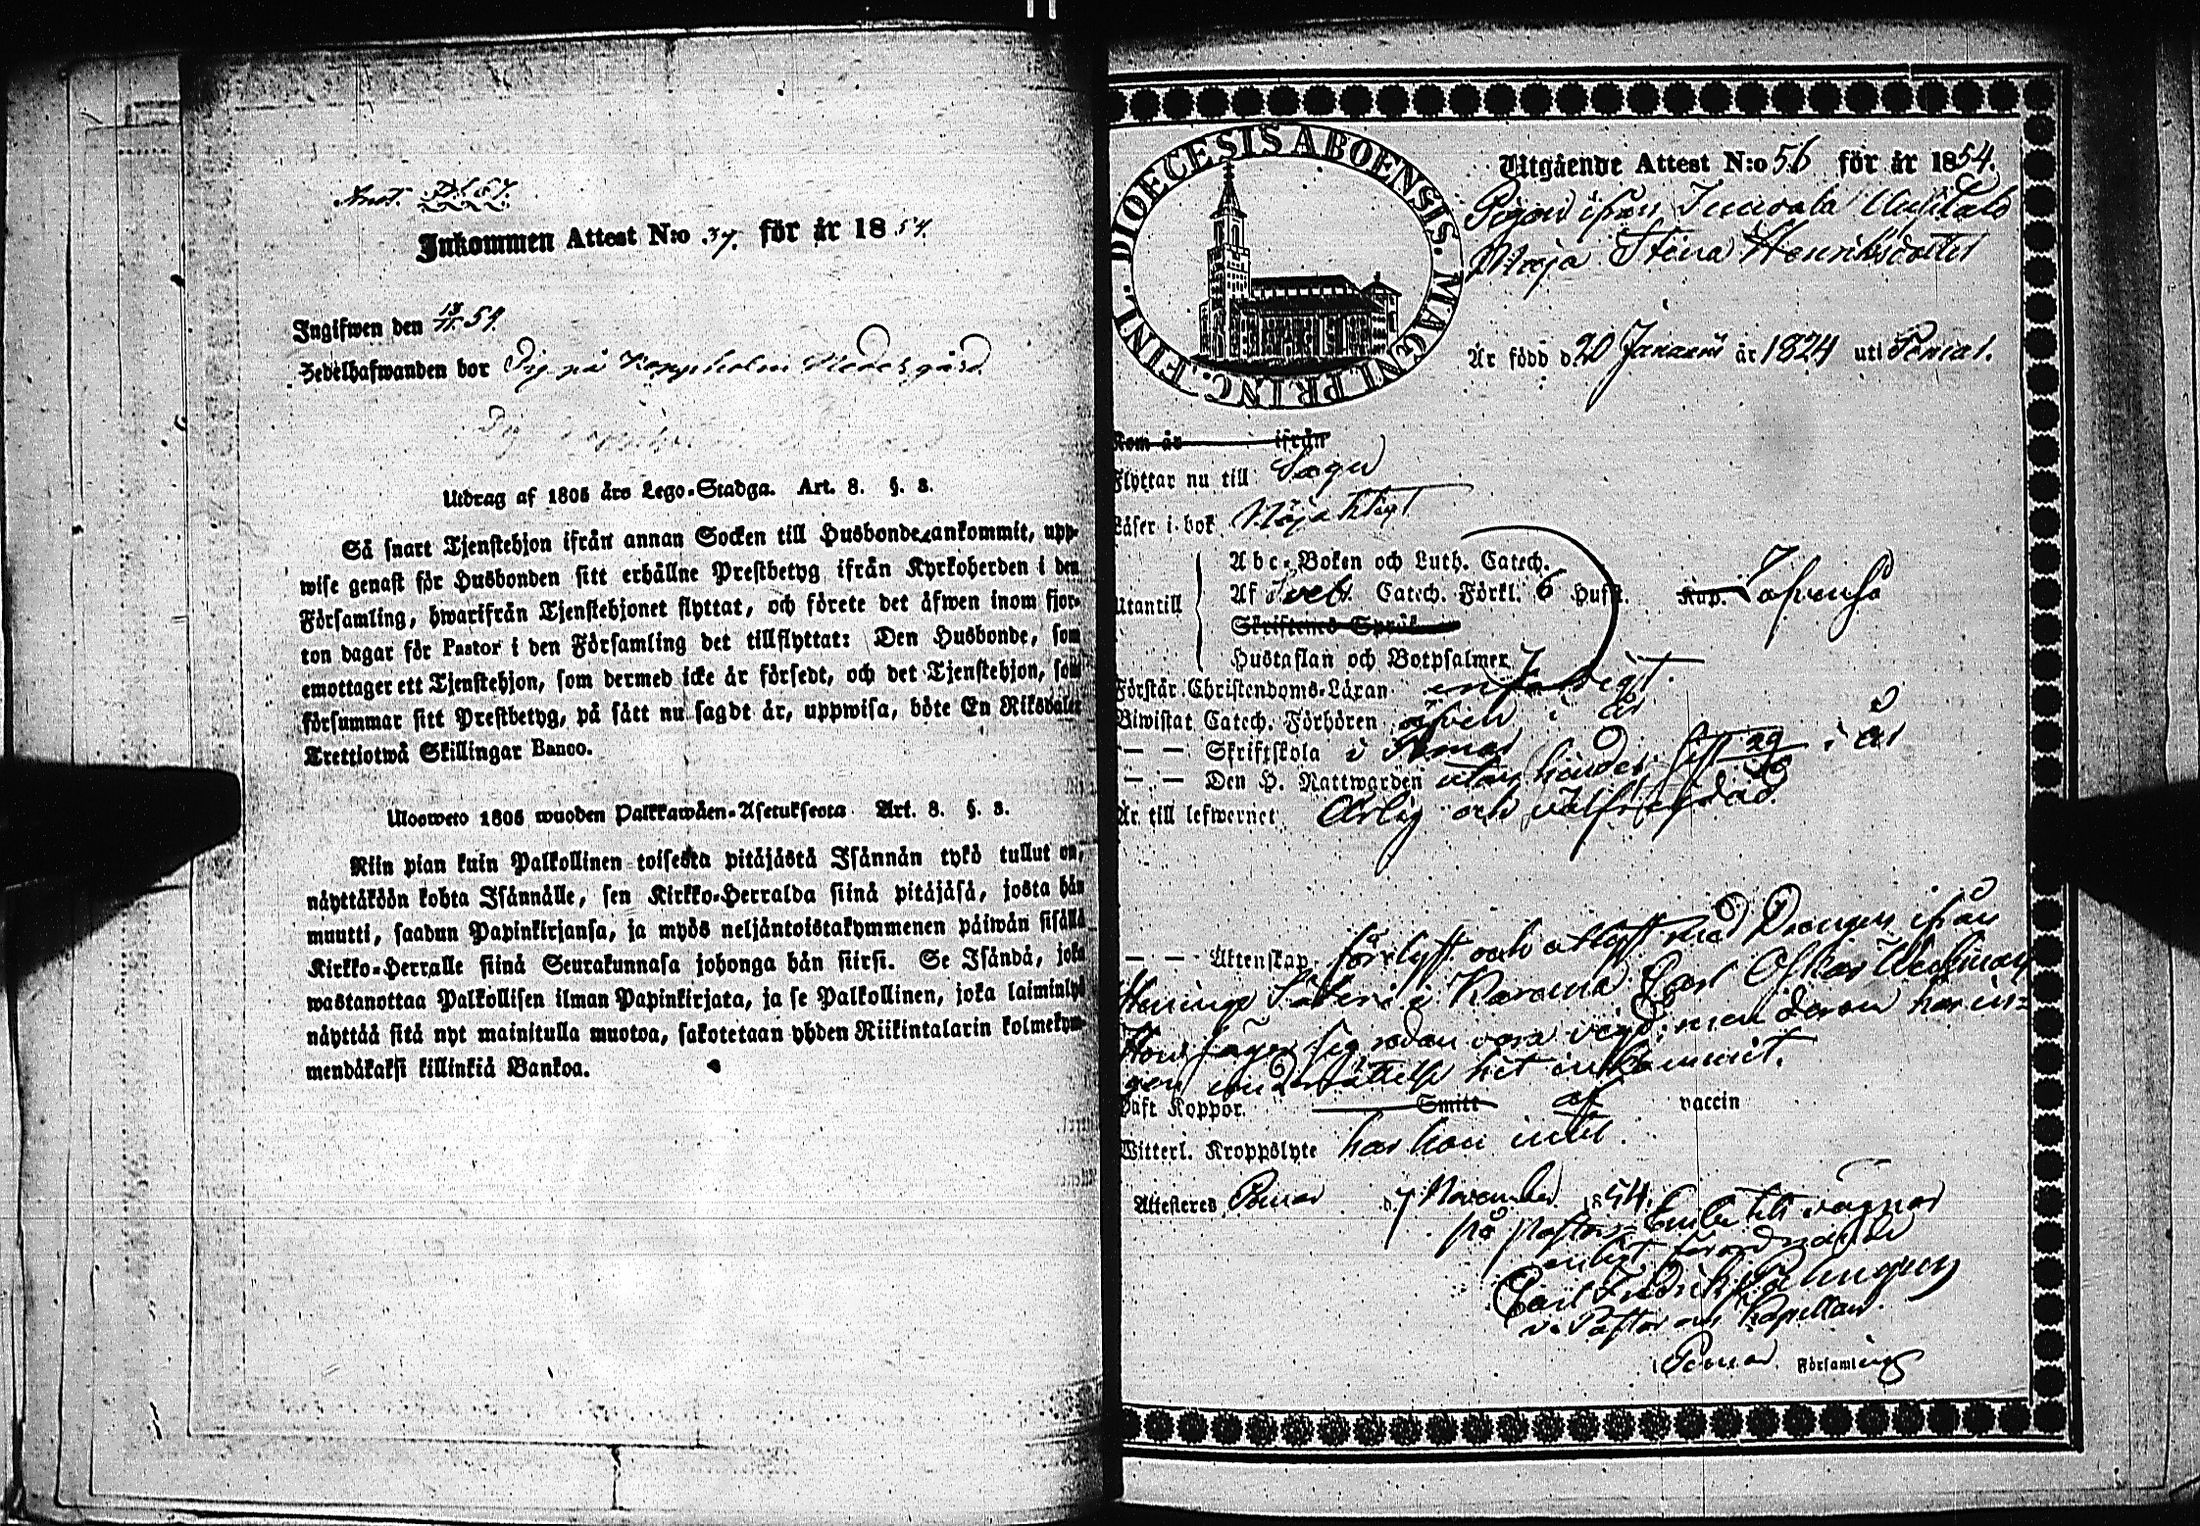 Inkommen Attest N:o 37. för år 1854.
Ingifwen den 13/11 54.
Zedelhafwanden bor Pig på Koppholm
Utdrag af 1805 års Lego-Stadga. Art. 8. §. 3.
Så snart Tjenstehjon ifrån annan Socken till Husbonde ankommit, upp-
wise genast för Husbonden sitt erhållne Prestbetyg ifrån Kyrkoherden i den
Församling, hwarifrån Tjenstehjonet flyttat, och förete det äfwen inom fjor-
ton dagar för Pastor i den Församling det tillflyttat: Den Husbonde, som
emottager ett Tjenstehjon, som dermed icke är försedt, och det Tjenstehjon, som
försummar sitt Prestbetyg, på sätt nu sagdt är, uppwisa, böte En Riksdaler
Trettiotwå Skillingar Banco.
Ulosweto 1805 wuoden Palkkawäen-Asetuksesta Art. 8. §. 3.
Niin pian kuin Palkollinen toisesta pitäjästä Isännän tykö tullut on,
näyttäköön kohta Isännälle, sen Kirkko-Herralda siinä pitäjäsä, josta hän
muutti, saadun Papinkirjansa, ja myös neljäntoistakymmenen päiwän sisällä
Kirkko-Herralle siinä Seurakunnasa johonga hän siirsi. Se Isändä, joka
wastanottaa Palkollisen ilman Papinkirjata, ja se Palkollinen, joka laiminlyö
näyttää sitä nyt mainitulla muotoa, sakotetaan yhden Riikintalarin kolmekym-
mendäkaksi killinkiä Bankoa.
DIOECESIS ABOENSIS. MAGNI PRINC. FINL.
Utgående Attest N:o 56 för år 1854.
Pigan ifrån
Maja Stina Henriksdotter
Är född d. 20 Januarii år 1824 uti Pemar.
Kom år ifrån
Flyttar nu till Sagu
Läser i bok Nöjaktigt
Abc-Boken och Luth. Catech.
Utantill Af Sveb. Catech. Förkl. 6 Hufst. Kap.
Skriftens Språk
Hustaflan och Botpsalmer
Förstår Christendoms-Läran enfaldigt.
Biwistat Catech. Förhören äfven i år
— — Skriftskola i Pemar
— — Den H. Nattwarden utan hinder i år
Är till lefwernet Ärlig och välfrejdad.
— — Äktenskap förlyst och aflyst med Drängen ifrån
i Karuna Carl Oskar
Hon säger sig redan vara vigd, men derom har in-
gen underrättelse hit inkommit.
Haft Koppor. Smitt af vaccin
Witterl. Kroppslyte har hon intet.
Attesteres Pemar d. 7 November 1854.
på Pastors Embetets vägnar
enligt förordnande
Carl Fredrik
v. Pastor och Kapellan
i Pemar Församling